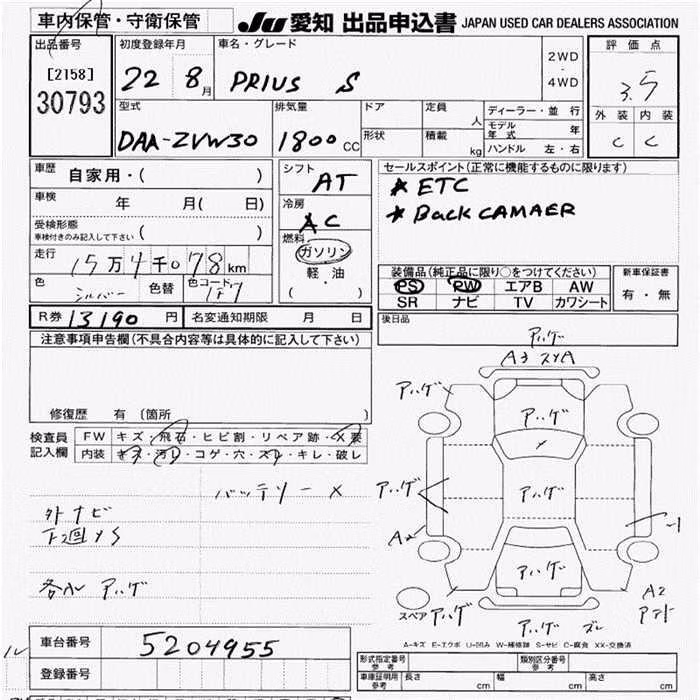 車内保管・守衛保管
JU 愛知 出品申込書 JAPAN USED CAR DEALERS ASSOCIATION
出品番号
[2158]
30793
初度登録年月
22 8月
車名・グレード
PRIUS S
2WD
・
4WD
評価点
3.5
外装 内装
C C
型式
DAA-ZVW30
排気量
1800 CC
ドア
形状
定員
人
積載
kg
ディーラー・並行
モデル年式 年
ハンドル 左・右
車歴
自家用・( )
車検
年 月( 日)
受検形態
車検付きのみ記入して下さい ( )
走行
15万4千078km
色
シルバー
色替
色コード
1F7
シフト
AT
冷房
AC
燃料
ガソリン
軽・油
( )
セールスポイント(正常に機能するものに限ります)
* ETC
* Back CAMAER
装備品(純正品に限り○をつけてください)
PS PW エアB AW
SR ナビ TV カワシート
新車保証書
有・無
後日品
R券 13190 円
名変通知期限 月 日
注意事項申告欄(不具合内容等は具体的に記入して下さい)
修復歴 有 〔箇所 〕
検査員
記入欄
FW キズ・飛石・ヒビ割・リペア跡・X要
内装 キズ・汚レ・コゲ・穴・スレ・キレ・破レ
バッテリー X
外ナビ
下廻サS
各ル アハゲ
アハゲ
A3 スリA
アハゲ
アハゲ
アハゲ
アハゲ
A2
アハゲ
A2
スペア
アハゲ
アハゲ ズレ
A-キズ E-エクボ U-凹み W-補修跡 S-サビ C-腐食 XX-交換済
車台番号
5204955
登録番号
形式指定番号
参考
類別区分番号
参考
車庫証明用
参考
長さ cm
幅 cm
高さ cm